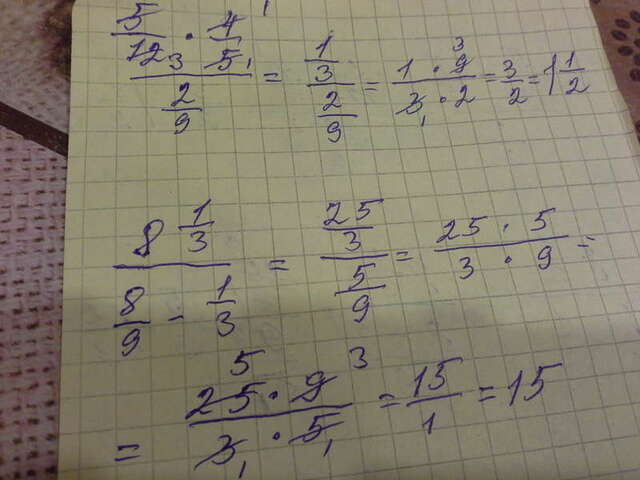 5/12 3 · 4/5 1 / 2/9 = 1/3 / 2/9 = 1 · 9 3 / 3 1 · 2 = 3/2 = 1 1/2
8 1/3 / 8/9 - 1/3 = 25/3 / 5/9 = 25 · 5 / 3 · 9 =
= 25 5 · 9 3 / 3 1 · 5 1 = 15/1 = 15